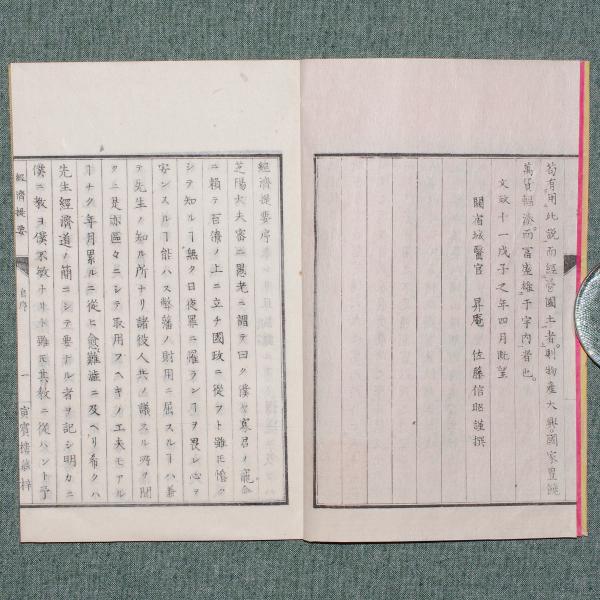 苟有用此説而經營國土者則物産大興國家豊饒
萬貨輻湊而冨盛雄于宇内者也
文政十一戊子之年四月既望
關宿城醫官 昇庵 佐藤信昭謹撰
經濟提要序
芝陽大夫審ニ愚老ニ謂テ曰ク僕寡君ノ寵命
ニ頼テ百僚ノ上ニ立チ國政ニ從フト雖モ
シテ無ク日夜罪ニ罹ランヿヲ畏レ心ヲ
安ンスルヿ能ハス弊藩ノ財用ニ屈スルヿハ兼
テ先生ノ知ル所ナリ諸役人共ノ議スル所ヲ聞
クニ是亦區々ニシテ取用フヘキノ工夫モアル
ヿナク年月累ルニ從ヒ愈難澁ニ及ヘリ希クハ
先生經濟道ノ簡ニシテ要ナル者ヲ記シ明カニ
僕ニ教ヨ僕不敏ナリト雖モ其教ニ從ハント予
經濟提要 自序 一